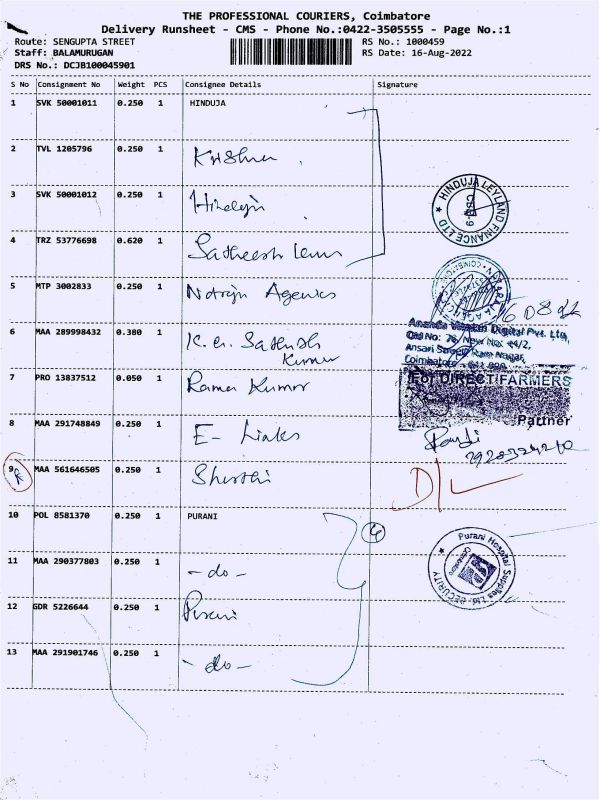 THE PROFESSIONAL COURIERS, Coimbatore
Delivery Runsheet - CMS - Phone No.:0422-3505555 - Page No.:1
Route: SENGUPTA STREET RS No.: 1000459
Staff: BALAMURUGAN RS Date: 16-Aug-2022
DRS No.: DCJB100045901
S No Consignment No Weight PCS Consignee Details Signature
1 SVK 50001011 0.250 1 HINDUJA
2 TVL 1205796 0.250 1 Krishna
3 SVK 50001012 0.250 1
HINDUJA LEYLAND FINANCE LTD
4 TRZ 53776698 0.620 1 Satheesh
5 MTP 3002833 0.250 1 Agencies
6 MAA 289998432 0.380 1 K.
Kumar
Digital Pvt. Ltd,
Ram Nagar,
Coimbatore
7 PRO 13837512 0.050 1 Rama Kumar
For DIRECT FARMERS
Partner
8 MAA 291748849 0.250 1 E- Links
9 MAA 561646505 0.250 1 D/L
10 POL 8581370 0.250 1 PURANI
Purani Hospital Supplies Ltd
SECURITY
11 MAA 290377803 0.250 1 -do-
12 GDR 5226644 0.250 1 Purani
13 MAA 291901746 0.250 1 -do-